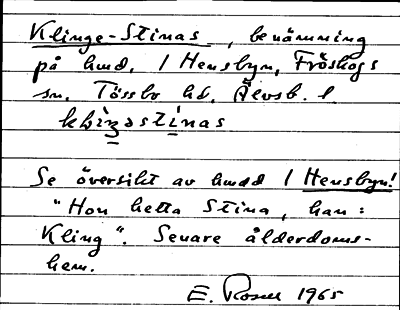 Klinge-Stinas, benämning
på hmd. i Hensbyn, Fröskogs
sn. Tössbo hd. Älvsb. l.
Se översikt av hmdd i Hensbyn!
"Hon hette Stina, han:
Kling". Senare ålderdoms-
hem.
E. Rosell 1965